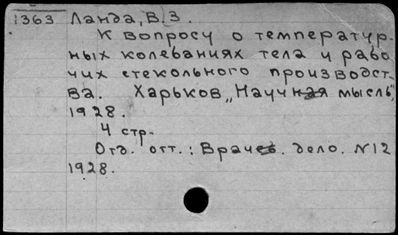 1363 Ланда, В. З.
К вопросу о температур-
ных колебаниях тела и рабо
чих стекольного производст-
ва. Харьков „Научная мысль",
1928.
4 стр.
Отд. отт.: Врачеб. дело. N12
1928.